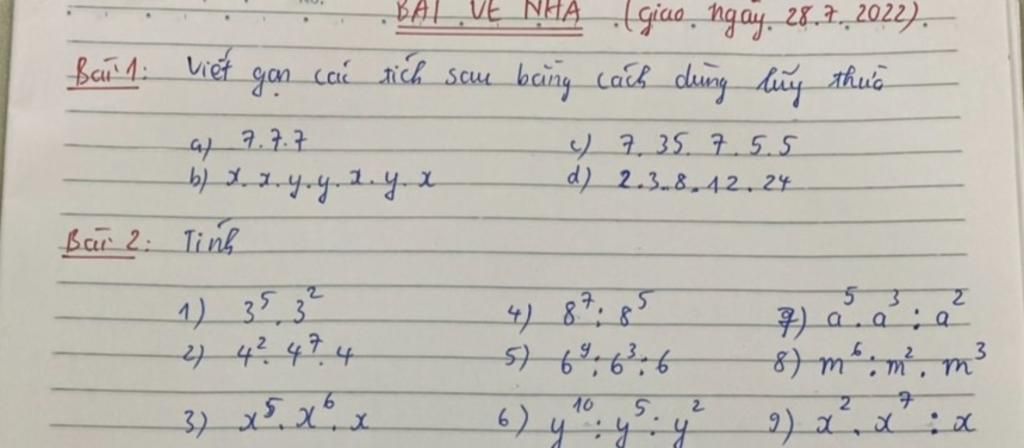 BÀI VỀ NHÀ (giao ngày 28.7.2022).
Bài 1: Viết gọn các tích sau bằng cách dùng lũy thừa
a) 7.7.7 c) 7.35.7.5.5
b) x.x.y.y.x.y.x d) 2.3.8.12.24
Bài 2: Tính
1) 3⁵.3² 4) 8⁷:8⁵ 7) a⁵.a³:a²
2) 4².4⁷.4 5) 6⁹:6³:6 8) m⁶:m².m³
3) x⁵.x⁶.x 6) y¹⁰:y⁵:y² 9) x².x⁷:x